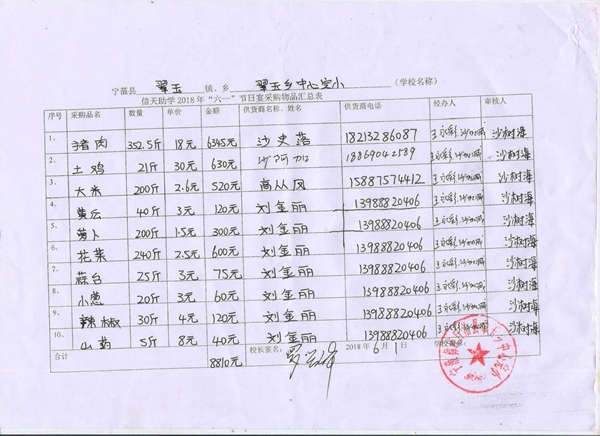 宁蒗县 翠玉 镇、乡 翠玉乡中心完小 (学校名称)
信天助学2018年“六一”节日宴采购物品汇总表
序号 采购品名 数量 单价 金额 供货商名称、 供货商电话 经办人 审核人
1、 猪肉 352.5斤 18元 6345元 沙史落 18213286087 沙树海
2、 土鸡 21斤 30元 630元 沙阿加 18869042589 沙树海
3、 大米 200斤 2.6元 520元 高从凤 15887574412 沙树海
4、 黄瓜 40斤 3元 120元 刘金丽 13988820406 沙树海
5、 萝卜 200斤 1.5元 300元 刘金丽 13988820406 沙树海
6、 花菜 240斤 2.5元 600元 刘金丽 13988820406 沙树海
7、 蒜台 25斤 3元 75元 刘金丽 13988820406 沙树海
8、 小葱 20斤 3元 60元 刘金丽 13988820406 沙树海
9、 辣椒 30斤 4元 120元 刘金丽 13988820406 沙树海
10、 山药 5斤 8元 40元 刘金丽 13988820406 沙树海
合计 8810元 校长签名: 2018年6月1